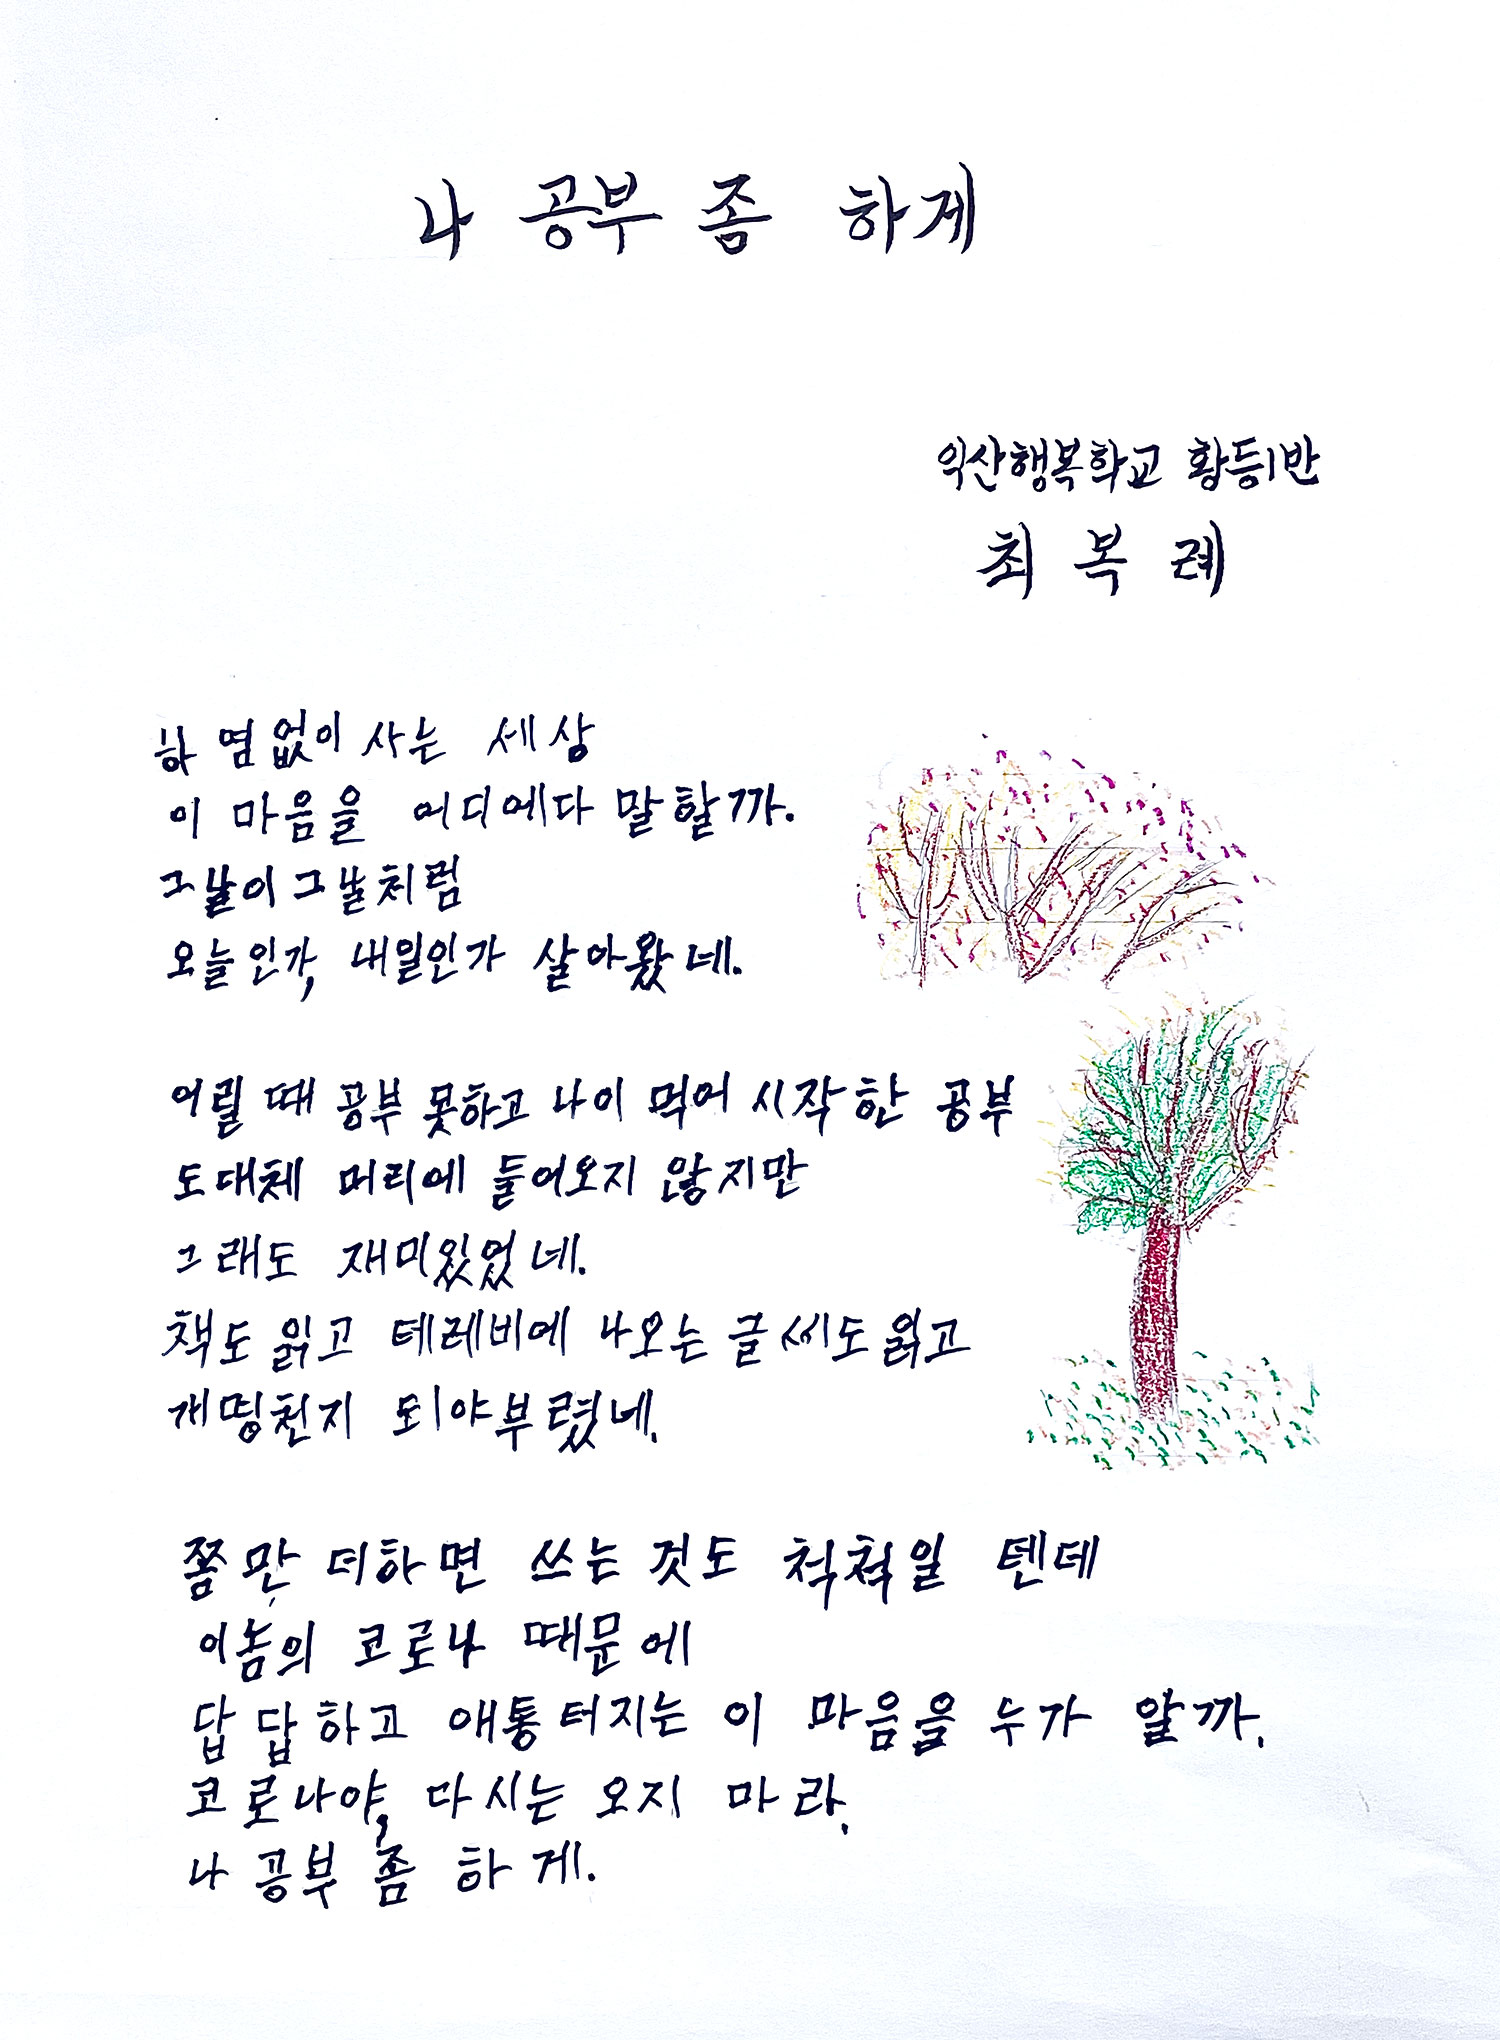 나 공부 좀 하게
익산행복학교 황등1반
최 복 례
하염없이 사는 세상
이 마음을 어디에다 말할까.
그날이 그날처럼
오늘인가, 내일인가 살아왔네.
어릴 때 공부 못하고 나이 먹어 시작한 공부
도대체 머리에 들어오지 않지만
그래도 재미있었네.
책도 읽고 테레비에 나오는 글씨도 읽고
개띵천지 되야부렸네.
쫌만 더하면 쓰는 것도 척척일 텐데
이놈의 코로나 때문에
답답하고 애통터지는 이 마음을 누가 알까.
코로나야, 다시는 오지 마라.
나 공부 좀 하게.